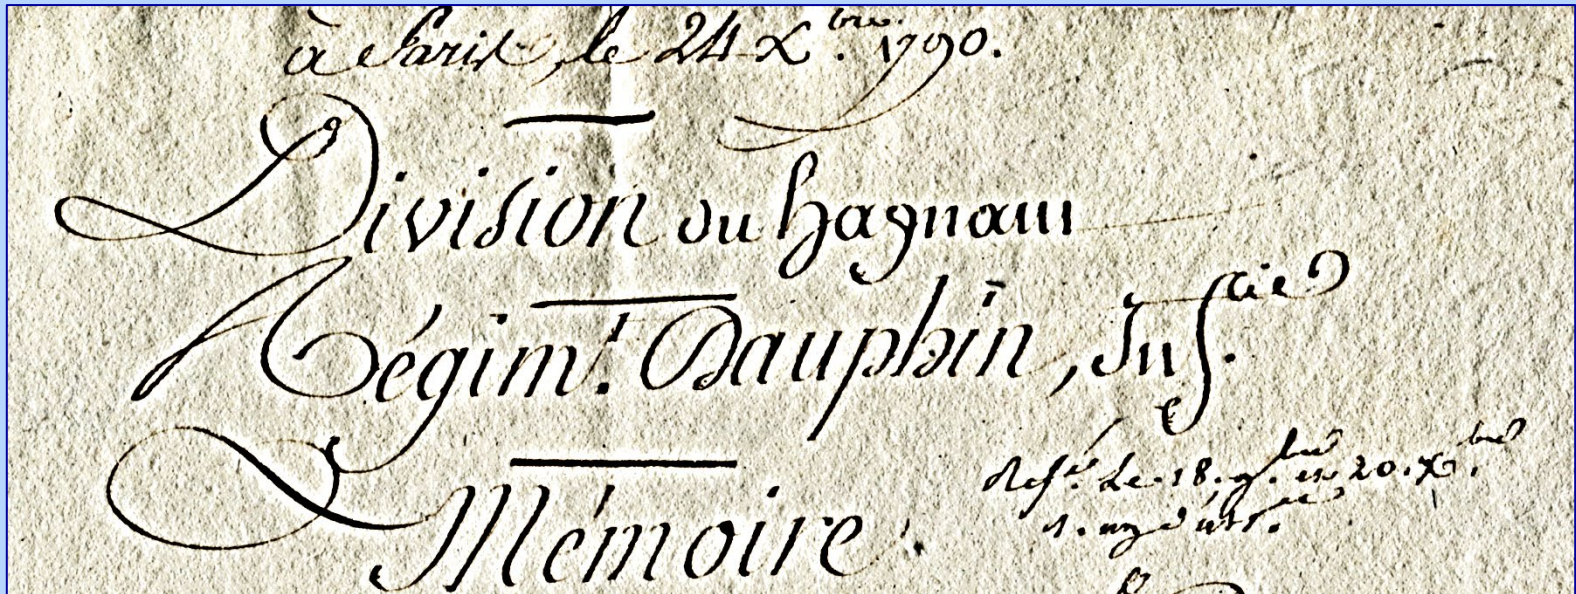 à Paris, le 24 X.bre 1790.
Division du hagnau
Régim.t Dauphin, Inf.cie
Mémoire.
Ref.é Le 18. 9.bre et 20. X.bre